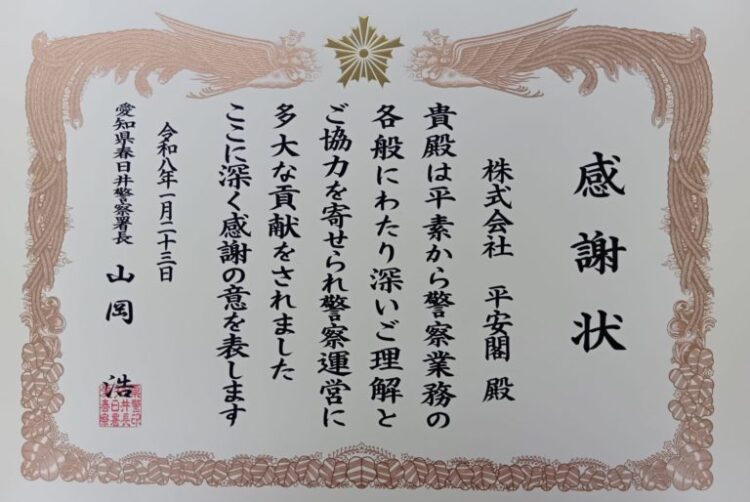 感謝状
株式会社 平安閣 殿
貴殿は平素から警察業務の
各般にわたり深いご理解と
ご協力を寄せられ警察運営に
多大な貢献をされました
ここに深く感謝の意を表します
令和八年一月二十三日
愛知県春日井警察署長 山岡 浩